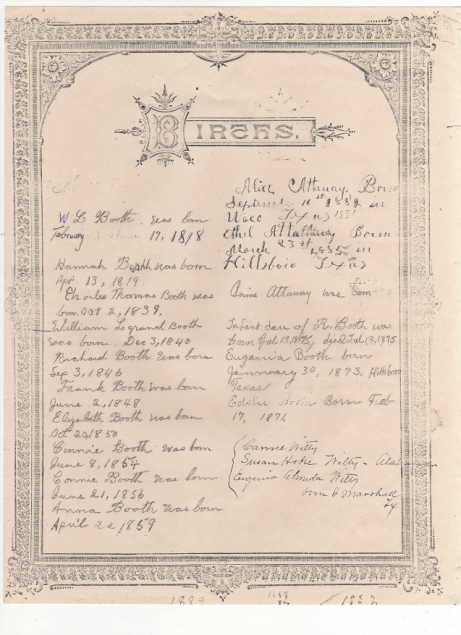 BIRTHS.
W L Booth was born
February 17, 1818
Hannah Booth was born
Apr. 13, 1819
Charles Thomas Booth was
born Oct 2, 1839.
William Legrand Booth
was born Dec 3, 1840
Richard Booth was born
Sep 3, 1846
Frank Booth was born
June 2, 1848
Elizabeth Booth was born
Oct 22, 1850
Connie Booth was born
June 8, 1854
Connie Booth was born
June 21, 1856
Anna Booth was born
April 22, 1859
Alice Attaway Born
September 10 in
Waco Texas
Ethel Attaway Born
March 23 in
Hillsboro Texas
Attaway was born
Infant dau of R. Booth was
born
Eugenia Booth born
January 30, 1873. Hillsboro
Texas
Born Feb
17, 1876
Witty
Susan Witty
Eugenia Witty